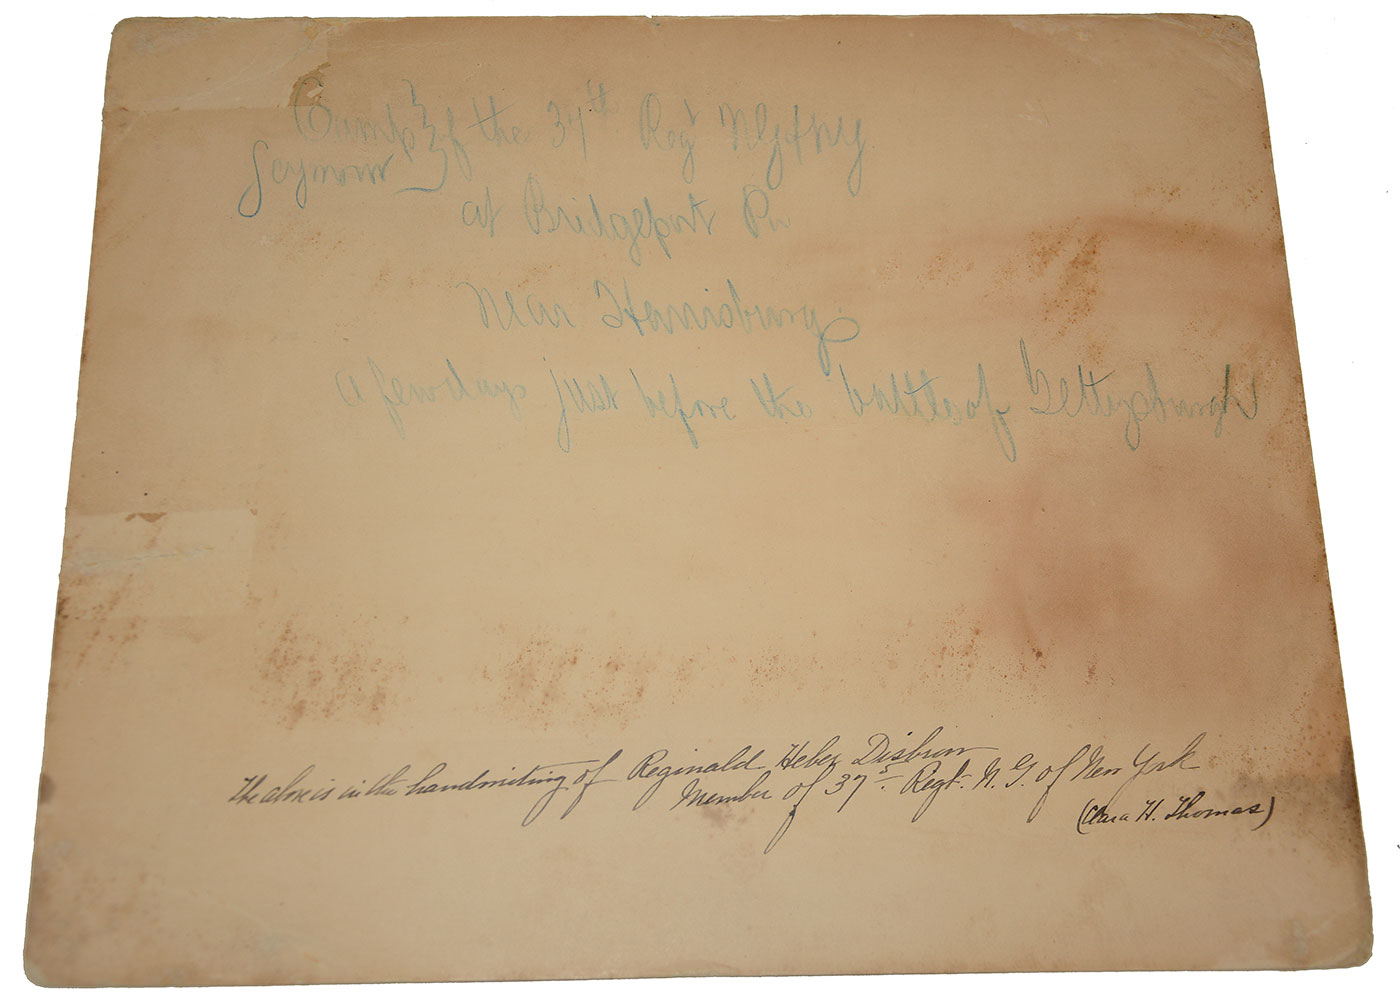 Camp } of the 37th Regt NG of NY.
Seymour }
at Bridgeport Pa
Near Harrisburg.
a few days just before the battle of Gettysburgh
The above is in the handwriting of Reginald Heber Disbrow
Member of 37st. Regt. N. G. of New York
(Clara H. Thomas)